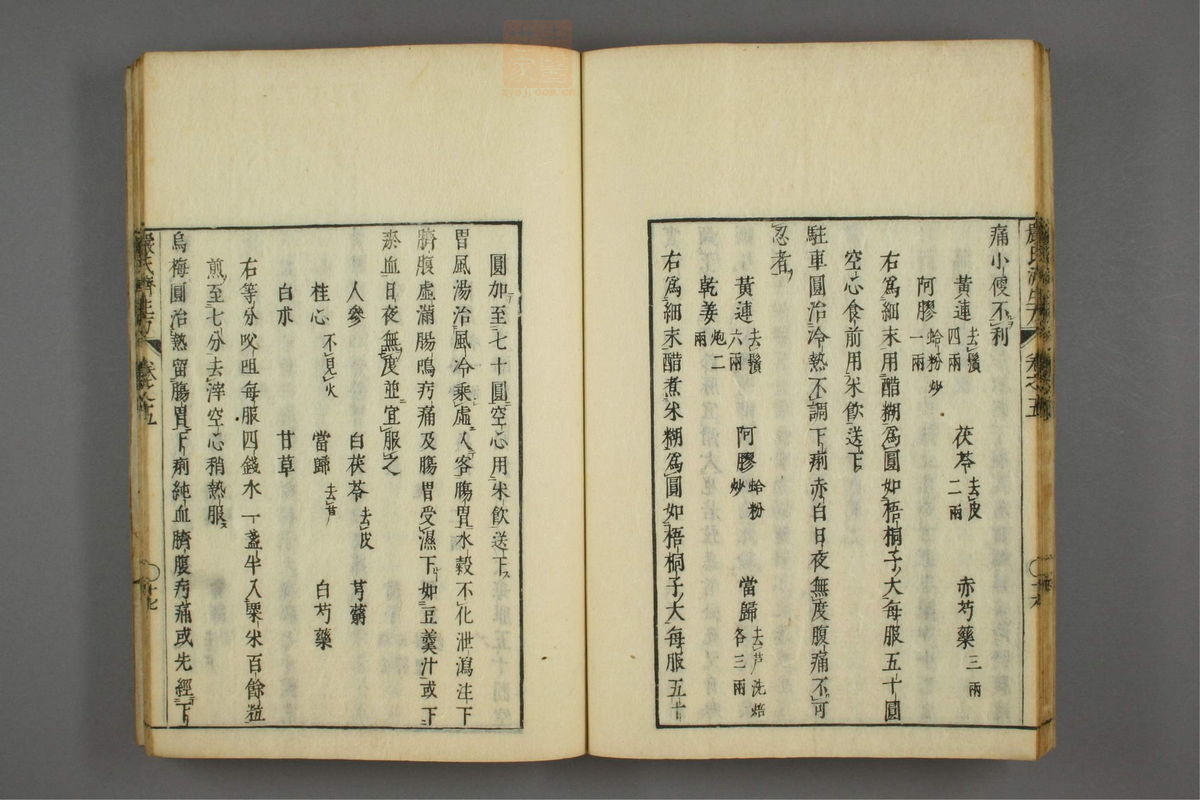 痛小便不利
黃連去鬚四兩 茯苓去皮二兩 赤芍藥三兩
阿膠蛤粉炒一兩
右爲細末用醋糊爲圓如梧桐子大每服五十圓
空心食前用米飲送下
駐車圓治冷熱不調下痢赤白日夜無度腹痛不可
忍者
黃連去鬚六兩 阿膠蛤粉炒 當歸去芦洗焙各三兩
乾姜炮二兩
右爲細末醋煮米糊爲圓如梧桐子大每服五十
圓加至七十圓空心用米飲送下
胃風湯治風冷乘虛入客腸胃水穀不化泄瀉注下
臍腹虛滿腸鳴疞痛及腸胃受濕下如豆羹汁或下
瘀血日夜無度並宜服之
人參 白茯苓去皮 芎藭
桂心不見火 當歸去芦 白芍藥
白朮 甘草
右等分㕮咀每服四錢水一盞半入粟米百餘粒
煎至七分去滓空心稍熱服
烏梅圓治熱留腸胃下痢純血臍腹疞痛或先經下
嚴氏濟生方 卷之五